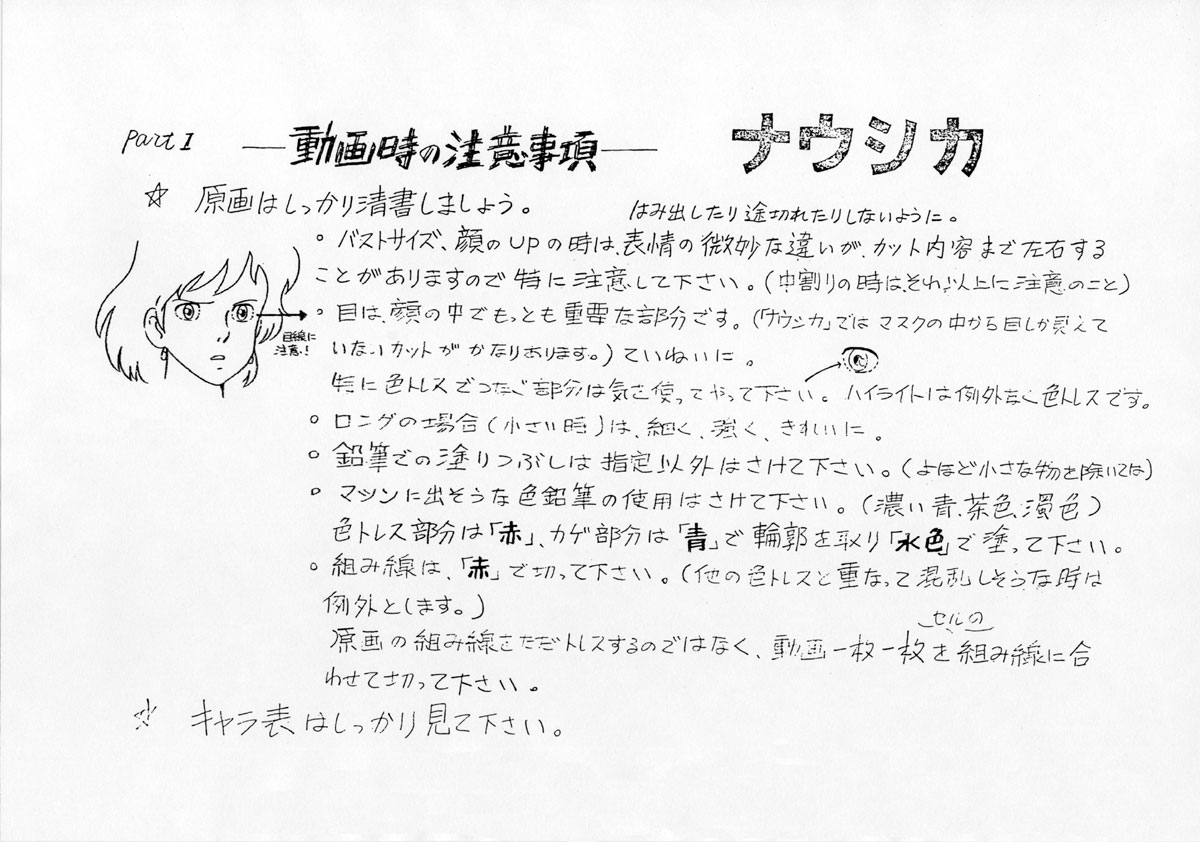 Part I
―動画時の注意事項―
ナウシカ
☆ 原画はしっかり清書しましょう。
はみ出したり途切れたりしないように。
○ バストサイズ、顔のUPの時は、表情の微妙な違いが、カット内容まで左右する
ことがありますので特に注意して下さい。(中割りの時は、それ以上に注意のこと)
○ 目は、顔の中でもっとも重要な部分です。(「ナウシカ」ではマスクの中から目しか見えて
いないカットがかなりあります。)ていねいに。
目線に
注意!
特に色トレスでつなぐ部分は気を使ってやって下さい。 ハイライトは例外なく色トレスです。
○ ロングの場合(小さい時)は、細く、強く、きれいに。
○ 鉛筆での塗りつぶしは指定以外はさけて下さい。(よほど小さな物を除いては)
○ マシンに出そうな色鉛筆の使用はさけて下さい。(濃い青、茶色、濁色)
色トレス部分は「赤」、カゲ部分は「青」で輪郭を取り「水色」で塗って下さい。
○ 組み線は、「赤」で切って下さい。(他の色トレスと重なって混乱しそうな時は
例外とします。)
セルの
原画の組み線をただトレスするのではなく、動画一枚一枚を組み線に合
わせて切って下さい。
☆ キャラ表はしっかり見て下さい。